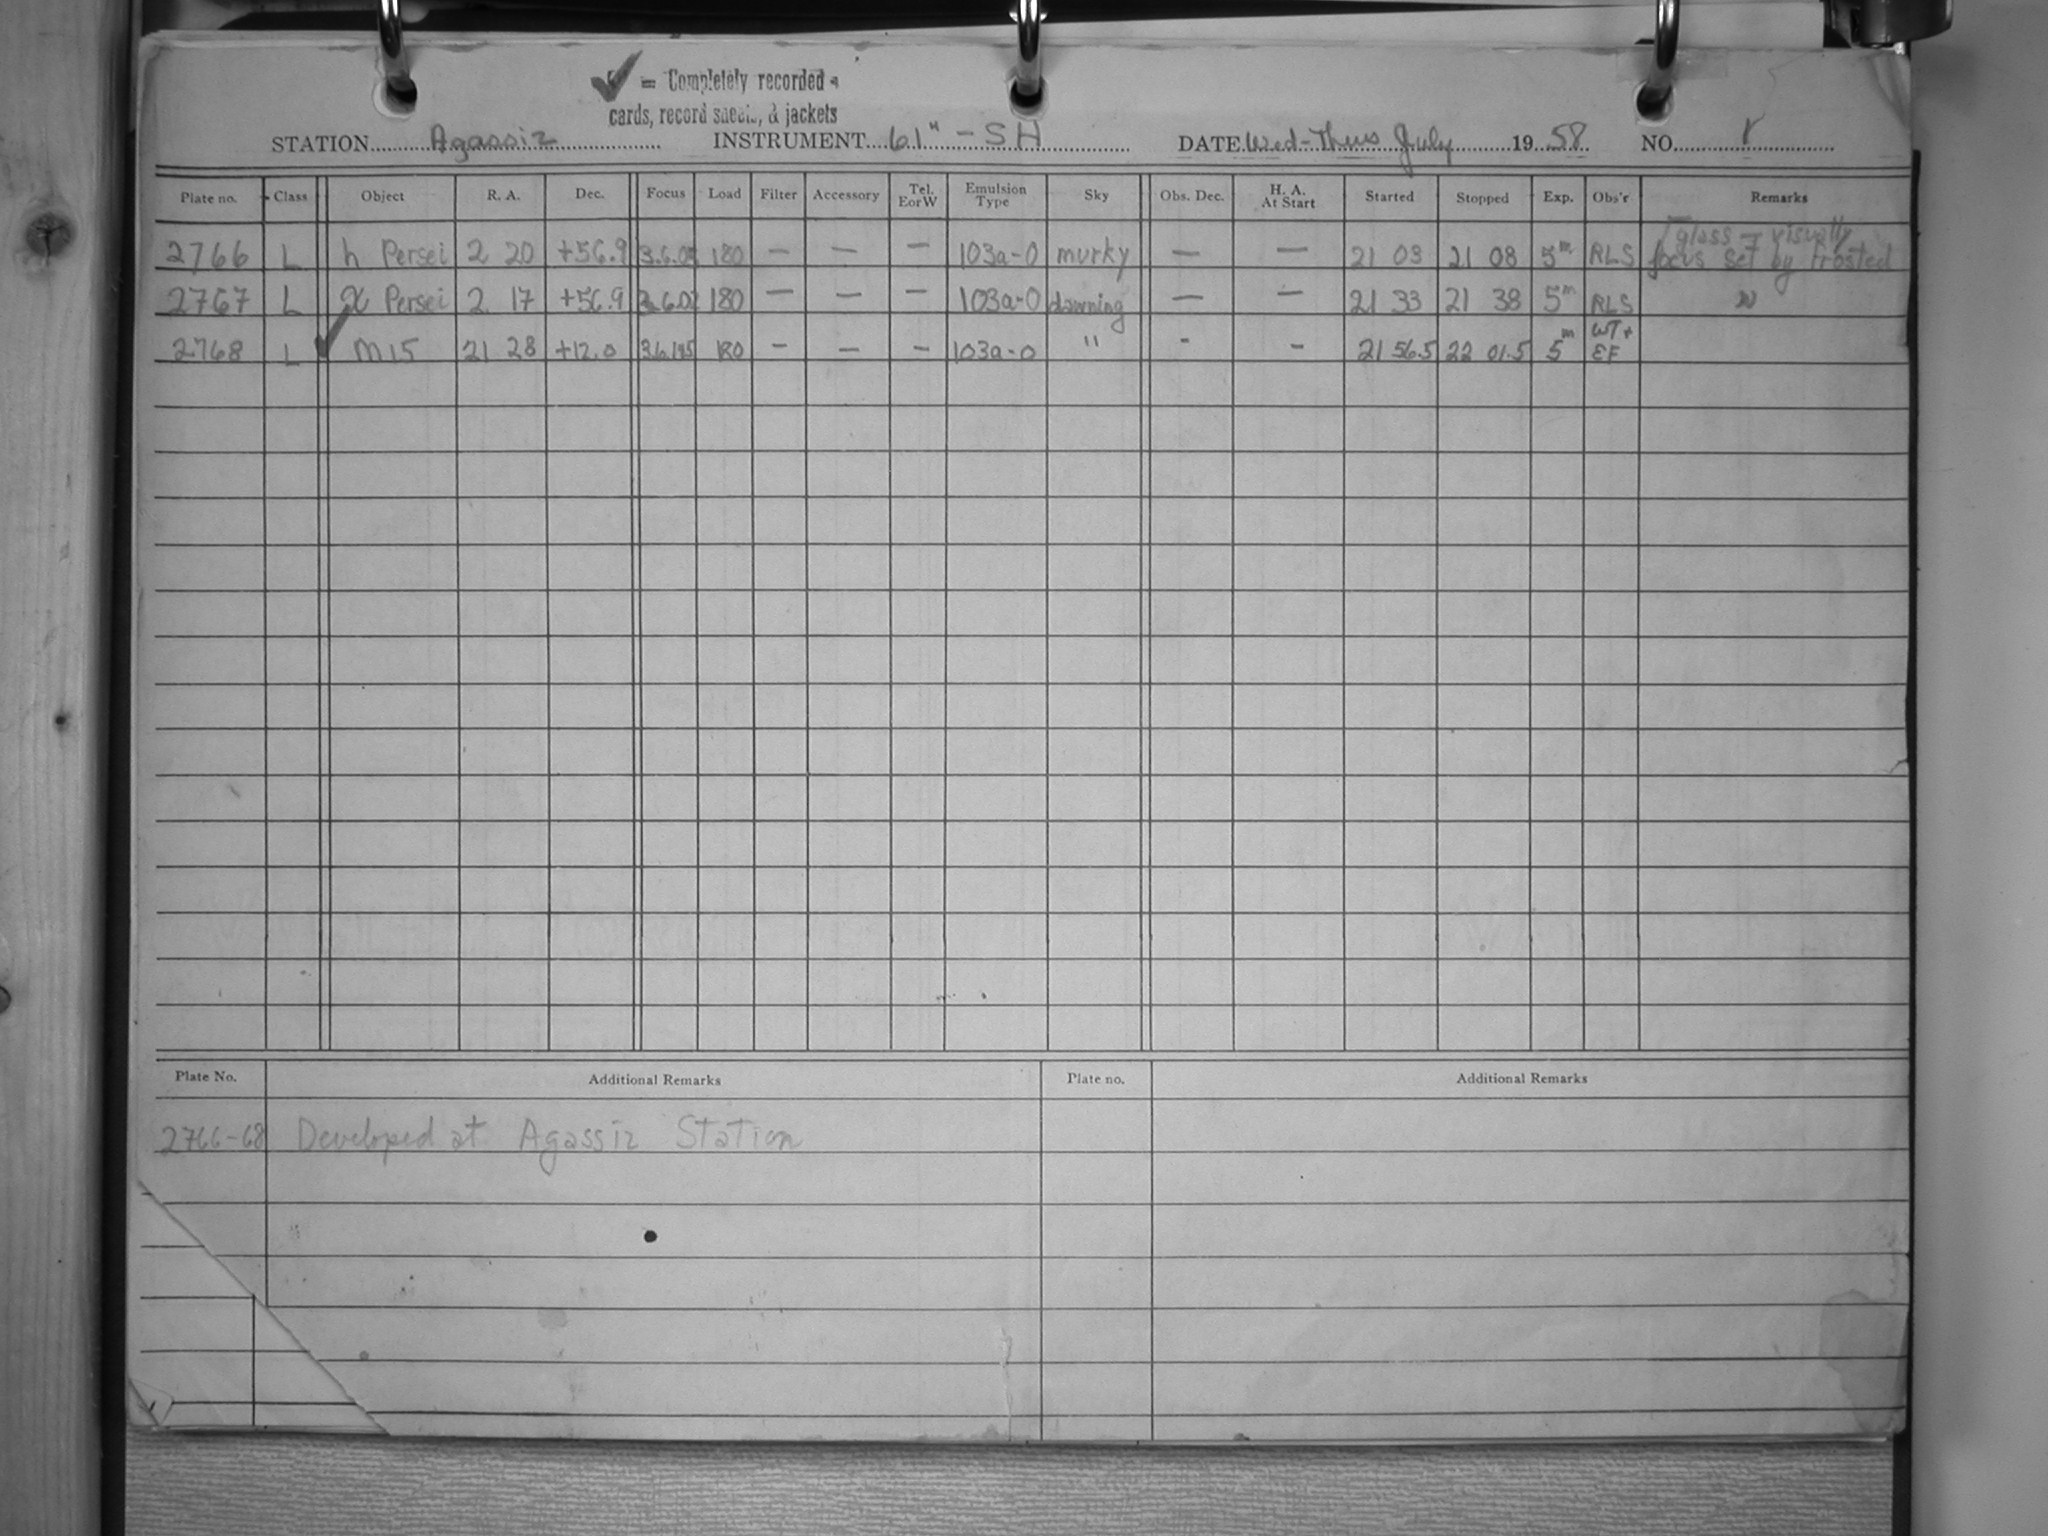 ✓ = Completely recorded
cards, record sheets, & jackets
STATION Agassiz INSTRUMENT 61" - SH DATE Wed-Thurs July 1958 NO. 1
Plate no. Class Object R. A. Dec. Focus Load Filter Accessory Tel. EorW Emulsion Type Sky Obs. Dec. H. A. At Start Started Stopped Exp. Obs'r Remarks
2766 L h Persei 2 20 +56.9 180 — — — 103a-O murky — — 21 03 21 08 5m RLS focus set by frosted glass — visually
2767 L χ Persei 2 17 +56.9 180 — — — 103a-O — — 21 33 21 38 5m RLS "
2768 L ✓ M15 21 28 +12.0 180 — — — 103a-O " - - 21 56.5 22 01.5 5m WT + EF
Plate No. Additional Remarks Plate no. Additional Remarks
2766-68 Developed at Agassiz Station